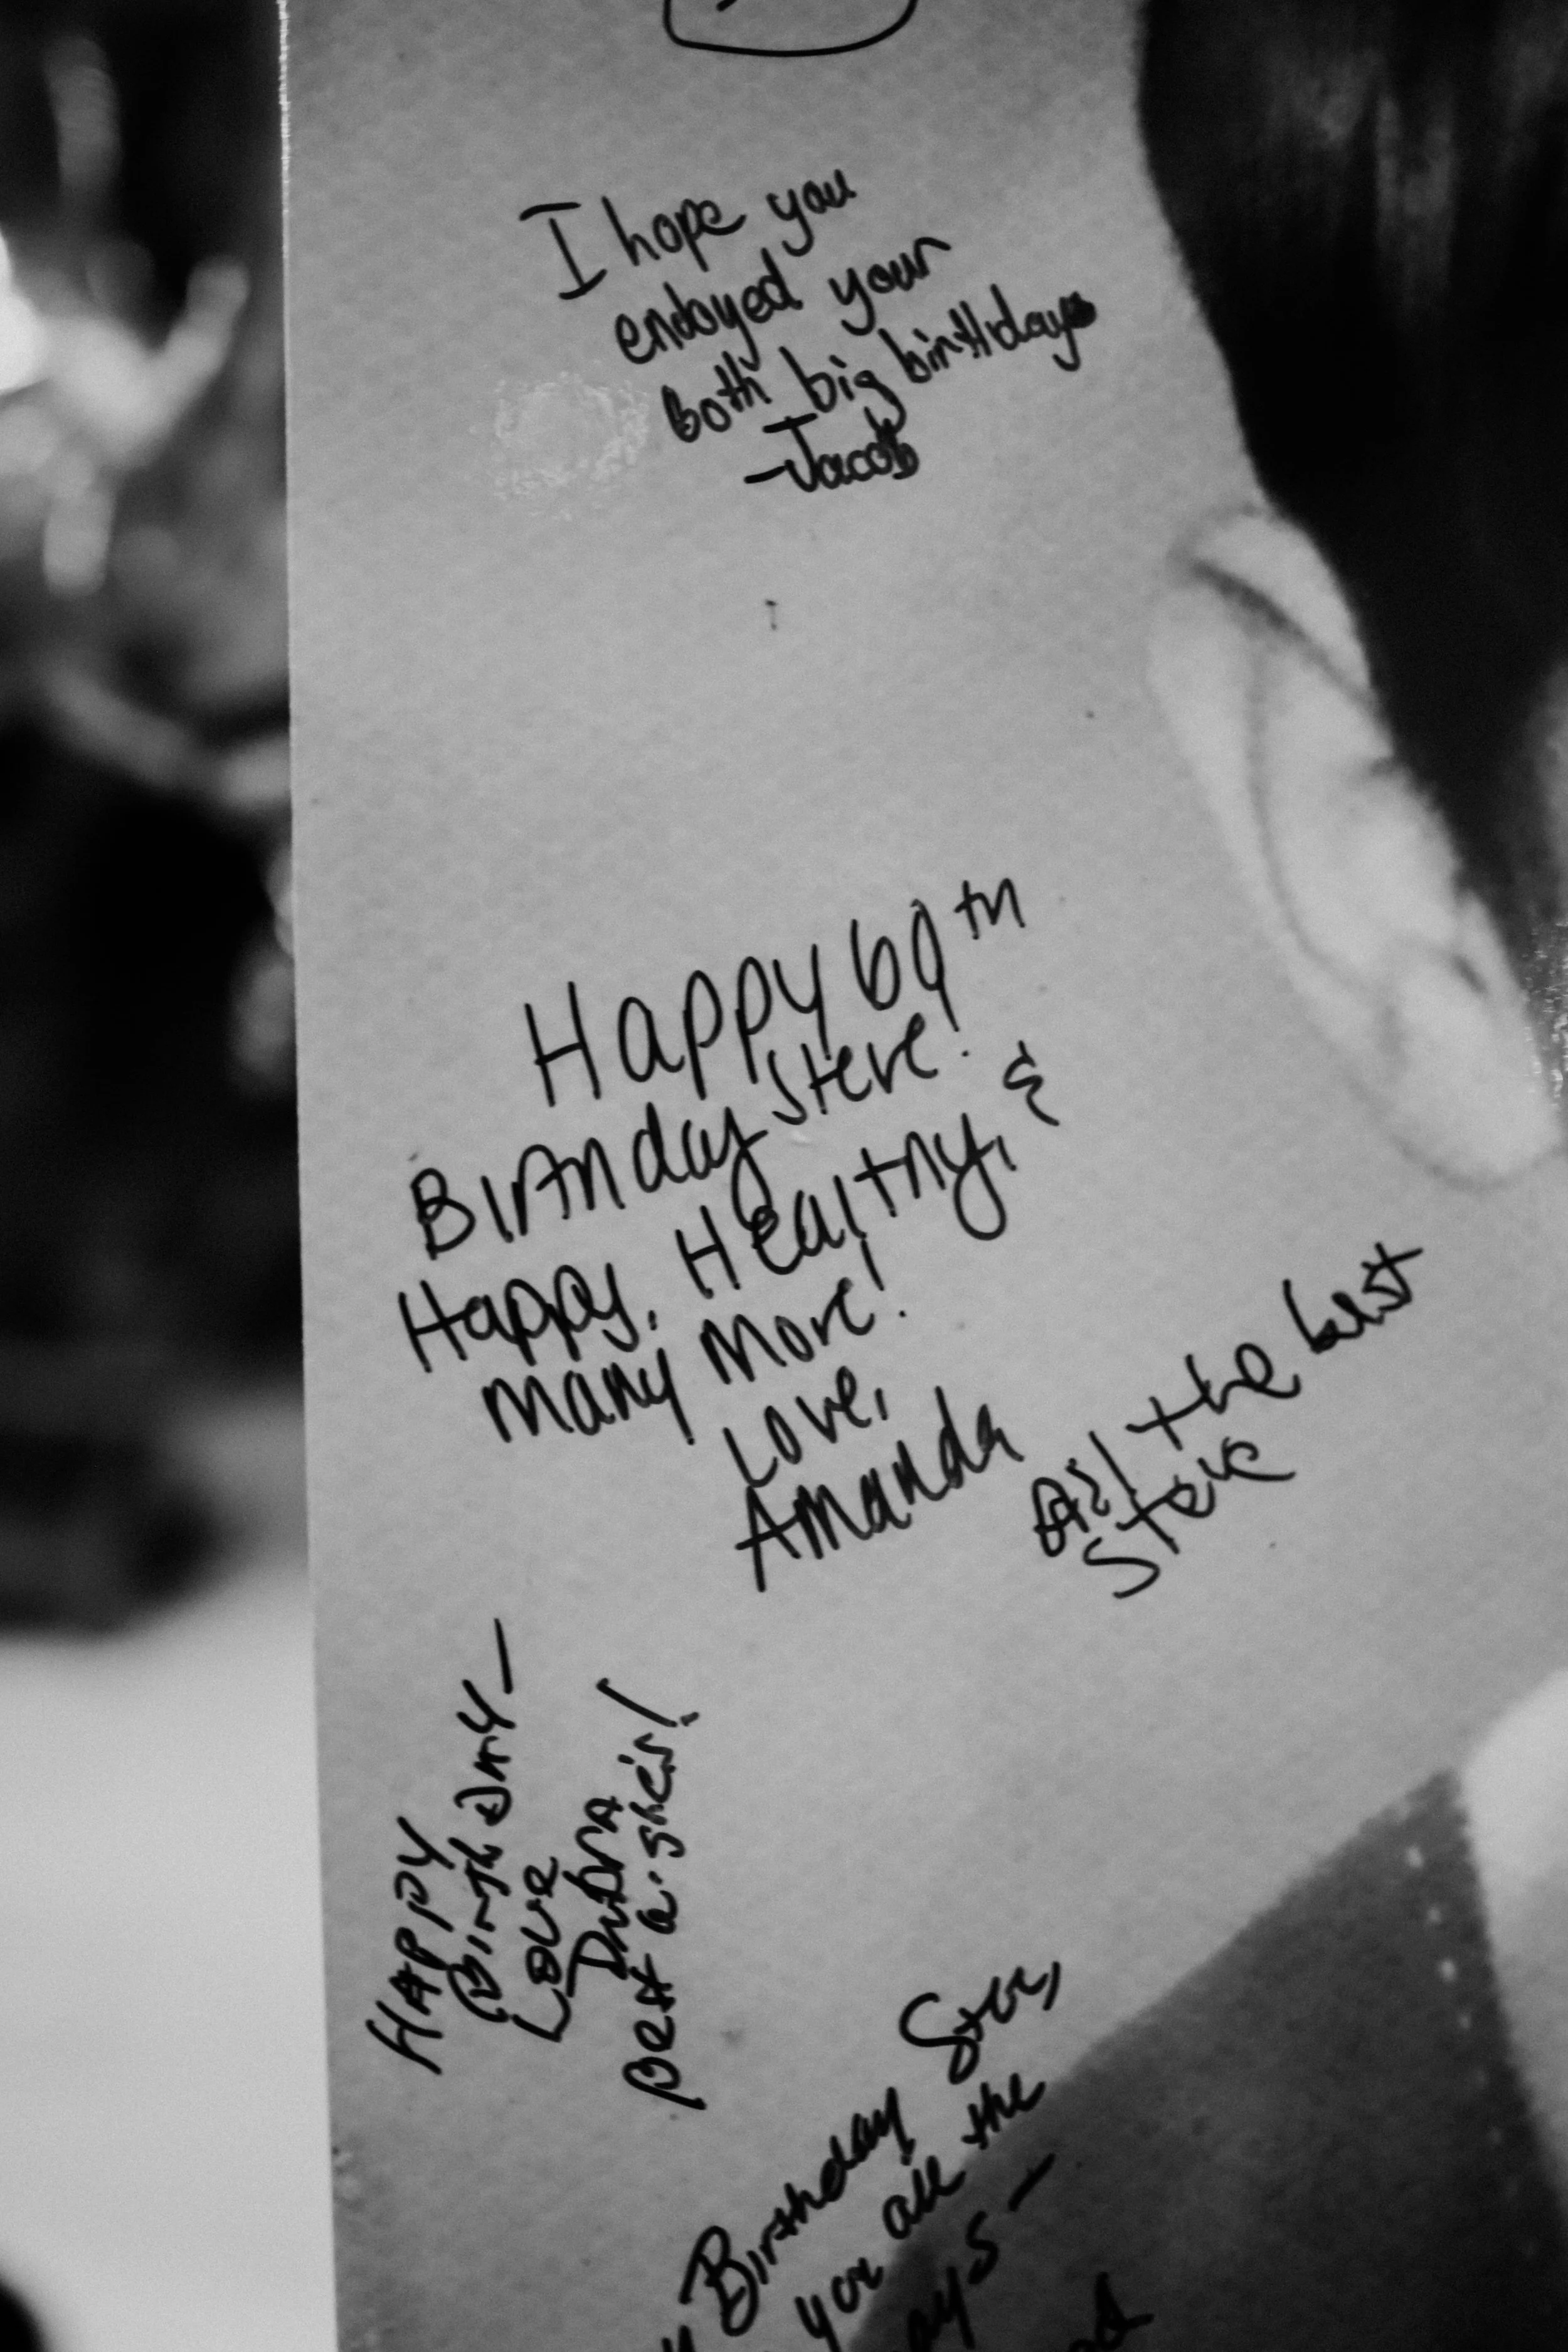 I hope you
endoyed your
Both big birthdays
-Jacob
Happy 60th
Birthday Steve!
Happy, Healthy, &
many more!
Love,
Amanda
All the best
Steve
HAPPY
BirthDAY —
Love
DebrA
Best a-she's!
Birthday Steve,
you all the
ays —